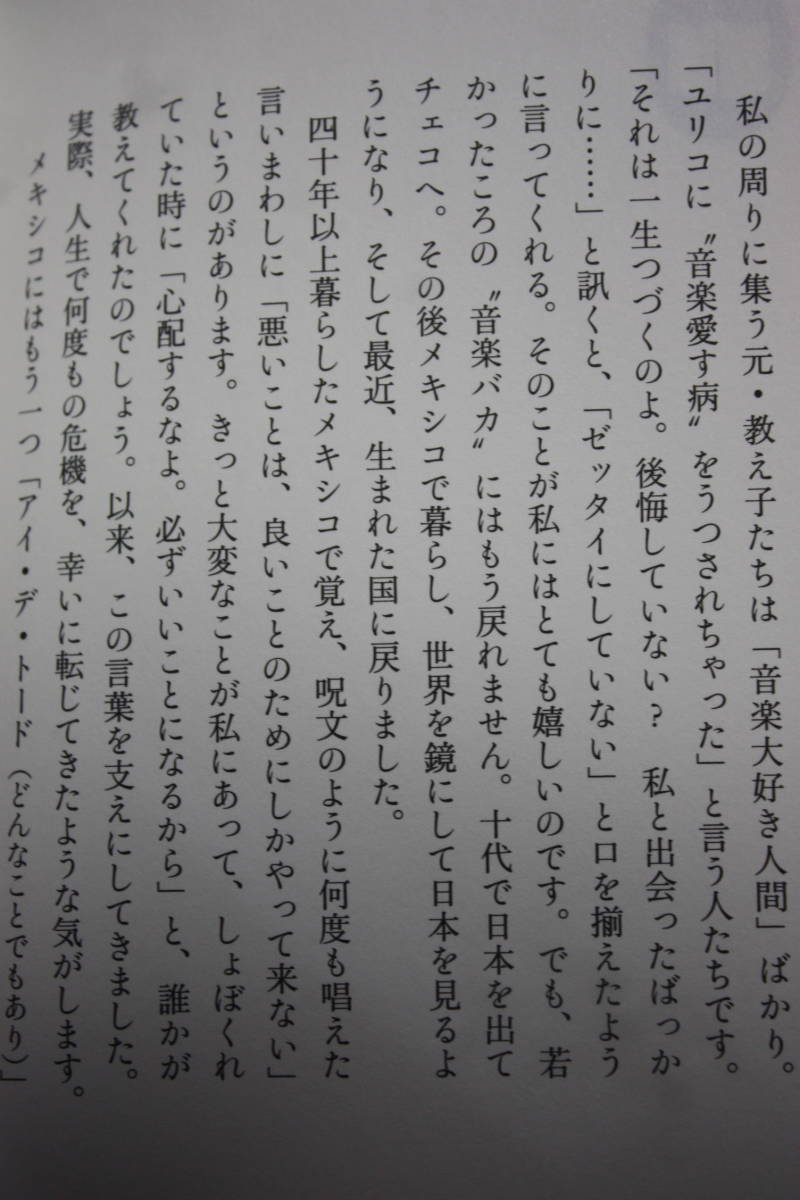 私の周りに集う元・教え子たちは「音楽大好き人間」ばかり。
「ユリコに〝音楽愛す病〟をうつされちゃった」と言う人たちです。
「それは一生つづくのよ。後悔していない?　私と出会ったばっか
りに……」と訊くと、「ゼッタイにしていない」と口を揃えたよう
に言ってくれる。そのことが私にはとても嬉しいのです。でも、若
かったころの〝音楽バカ〟にはもう戻れません。十代で日本を出て
チェコへ。その後メキシコで暮らし、世界を鏡にして日本を見るよ
うになり、そして最近、生まれた国に戻りました。
四十年以上暮らしたメキシコで覚え、呪文のように何度も唱えた
言いまわしに「悪いことは、良いことのためにしかやって来ない」
というのがあります。きっと大変なことが私にあって、しょぼくれ
ていた時に「心配するなよ。必ずいいことになるから」と、誰かが
教えてくれたのでしょう。以来、この言葉を支えにしてきました。
実際、人生で何度もの危機を、幸いに転じてきたような気がします。
メキシコにはもう一つ「アイ・デ・トード（どんなことでもあり）」